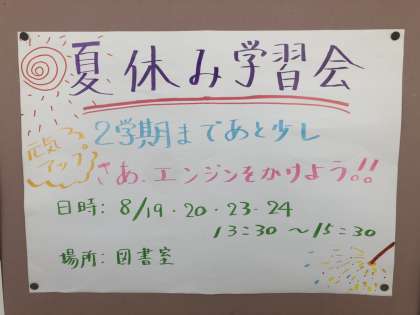 夏休み学習会
2学期まであと少し
元気
アップ
さあ、エンジンをかけよう!!
日時: 8/19・20・23・24
13:30〜15:30
場所: 図書室